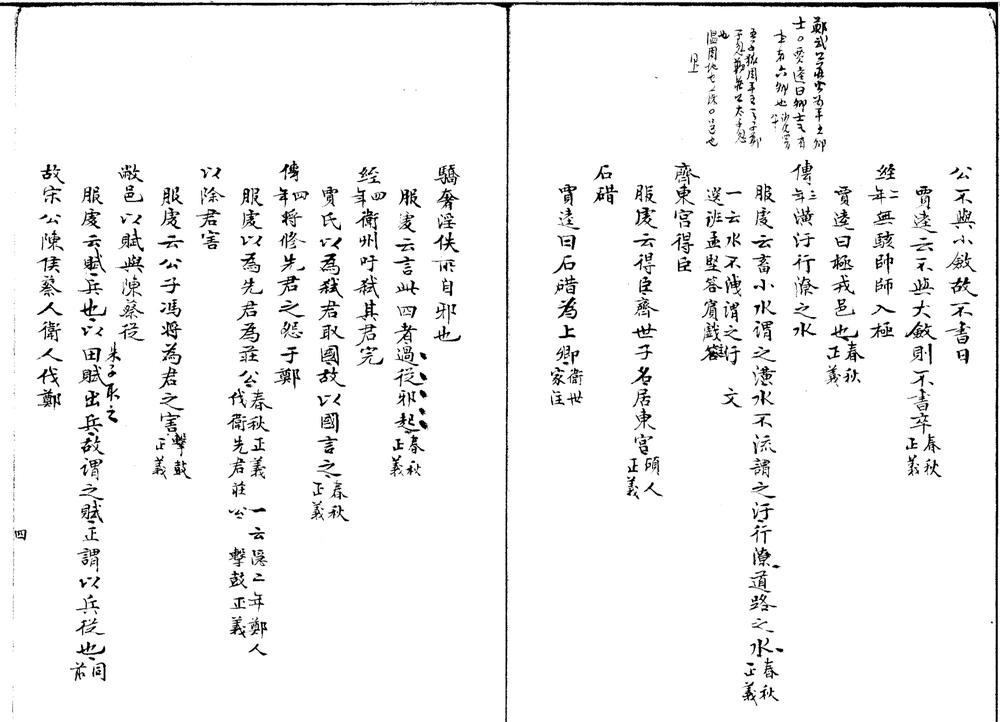 公不與小斂故不書日
賈逵云不與大斂則不書卒春秋正義
經二年無駭帥師入極
賈逵曰極戎邑也春秋正義
傳三年潢汙行潦之水
服虔云畜小水謂之潢水不流謂之汙行潦道路之水春秋正義
一云水不洩謂之行 文
選班孟堅答賓戲
齊東宮得臣
服虔云得臣齊世子名居東宮碩人正義
石碏
賈逵曰石碏為上卿衛世家注
鄭武公莊公為平王卿
士。賈逵曰卿士之有
者六卿也
驕奢淫佚所自邪也
服虔云言此四者過從邪起春秋正義
經四年衛州吁弒其君完
賈氏以為弒君取國故以國言之春秋正義
傳四年將修先君之怨于鄭
服虔以為先君為莊公春秋正義 一云隱二年鄭人伐衛先君莊公 擊鼓正義
以除君害
服虔云公子馮將為君之害擊鼓正義
敝邑以賦與陳蔡從
服虔云賦兵也以田賦出兵故謂之賦正謂以兵從也同前
朱子取之
故宋公陳侯蔡人衛人伐鄭
四